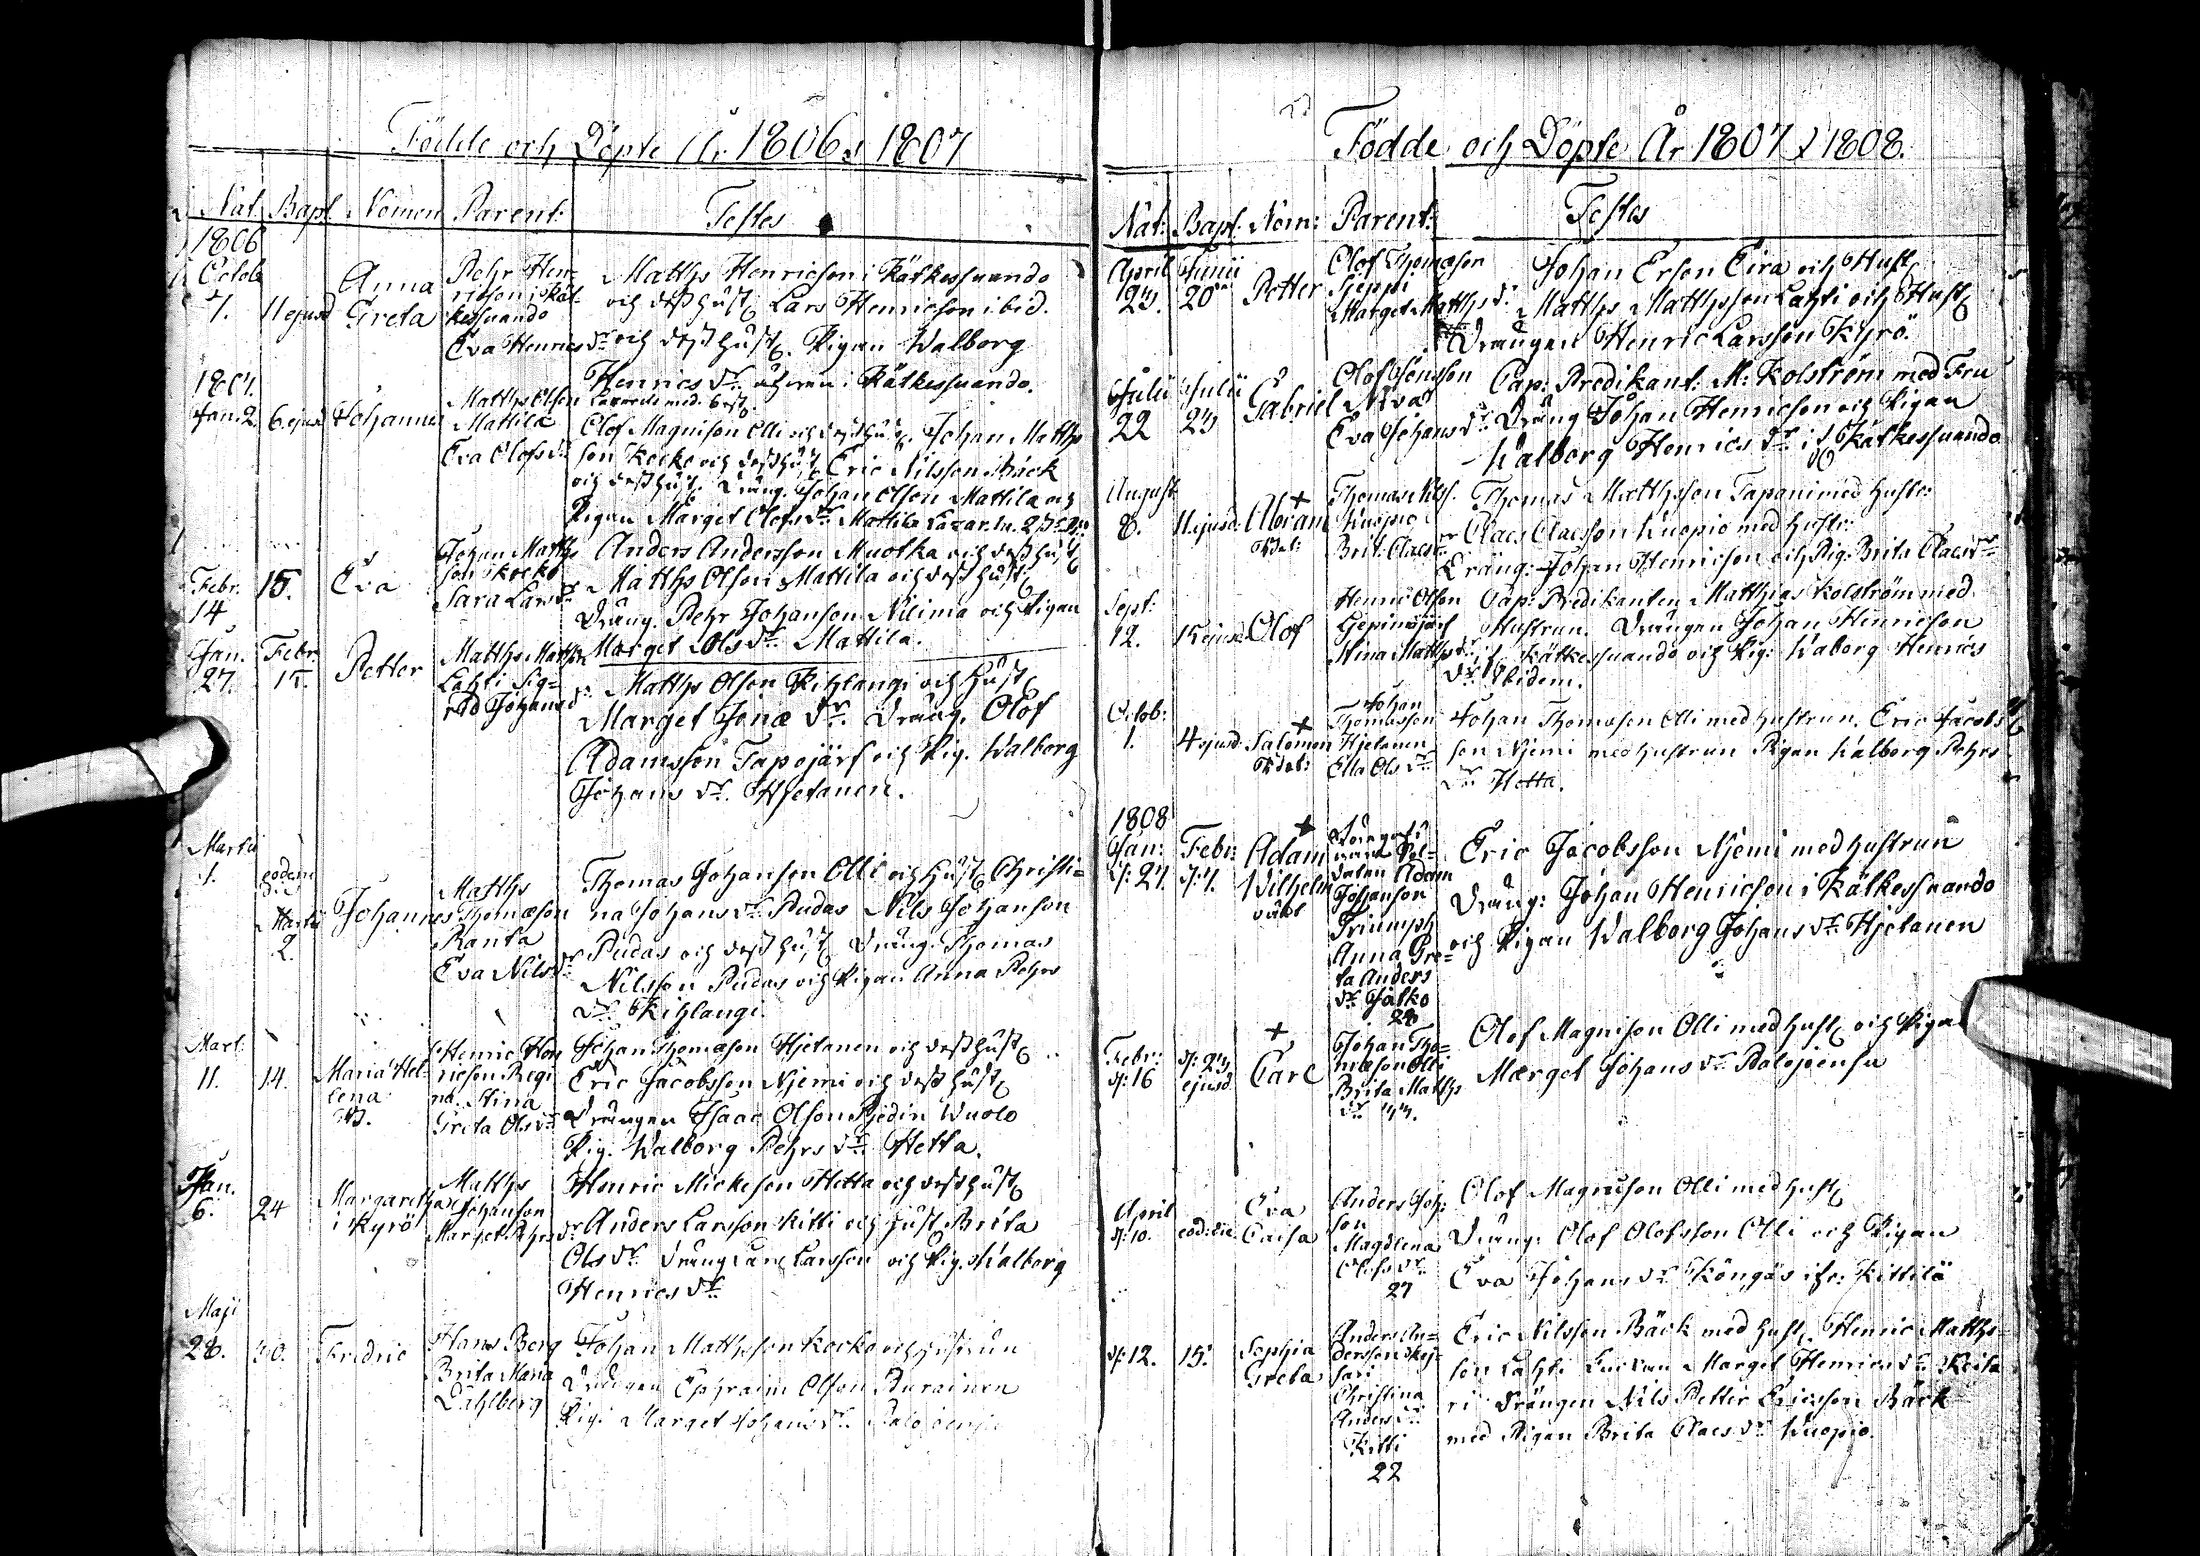 Födde och Döpte År 1806 & 1807
Nat. Bapt. Nomen Parent: Testes
1806
Octob. 7. 11 ejusd Anna Greta
Pehr Hen-
ricson i Kät-
kessuando
Eva Henrics dr
Matths Henricson i Kätkessuando
och dess hust. Lars Henricson ibid.
och dess hust. Pigan Walborg
Henrics dr i Kätkessuando.
1807.
Jan. 2. 6. ejusd Johannes
Matths Olsson
Mattila
Eva Olofs dr
Olof Magnison Olli och dess hust. Johan Matths
son Kocko och dess hust. Eric Nilsson Bäck
och dess hust. Dräng. Johan Olsson Mattila och
Pigan Marget Olofs dr Mattila
Febr. 14 15. Eva
Johan Matths
son Kocko
Sara Lars dr
Anders Andersson Muotka och dess hust.
Matths Olsson Mattila och dess hust.
Dräng. Pehr Johanson Nilima och Pigan
Marget Ols dr Mattila.
Jan. 27. Febr. 15. Petter
Matths Matths
Lahti Sig-
rid Johans dr
Matths Olsson Kihlangi och hust.
Marget Jonæ dr. Dräng. Olof
Adamsson Tapojärf och Pig. Walborg
Johans dr. Hjetanen.
Martii
1. eodem die
Martii 2. Johannes
Matths
Thomæson
Ranta
Eva Nils dr
Thomas Johanson Olli och hust. Christi-
na Johans dr Pudas Nils Johanson
Pudas och dess hust. Dräng. Thomas
Nilsson Pudas och Pigan Anna Pehrs
dr Kihlangi.
Mart.
11. 14. Maria Hel-
lena
Henric Hen
ricson Regi
na Stina
Greta Ols dr
Johan Thomæson Hjetanen och dess hust.
Eric Jacobsson Njemi och dess hust.
Drängen Isaac Olsson Wuolo
Pig. Walborg Pehrs dr Hetta.
Jan.
6. 24 Margaretha
i Kyrö
Matths
Johanson
Marget Pehrs dr
Henric Mickeson Hetta och dess hust.
Anders Larsson Kitti och hust. Brita
Ols dr Dräng Larsson och Pig. Walborg
Henrics dr
Maji
28. 30. Fredric
Hans Berg
Brita Maria
Dahlberg
Johan Matthsson Kocko och hustrun
Drängen Ephraim Olsson Purainen
Pig. Marget Johans dr
Födde och Döpte År 1807 & 1808.
Nat: Bapt: Nom: Parent: Testes
April 23. Junii 20 Petter
Olof Thomæson
Seppi
Marget Matths dr
Johan Erson Eira och Hust.
Matths Matthsson Lahti och Hust.
Drängen Henric Larsson Kyrö.
Julii 22 Julii 23 Gabriel
Olof Jönsson
Niva
Eva Johans dr
Cap: Predikant: M: Kolström med Fru
Dräng Johan Henricson och Pigan
Walborg Henrics dr i Kätkessuando
August
8. 11 ejusd: Abram
Thomas Nils.
Kuopio
Brit: Claes dr
Thomas Matthsson Tapani med hustr:
Claes Claesson Kuopio med hustr:
Dräng: Johan Henricson och Pig: Brita Claes dr
Sept:
12. 15 ejusd: Olof
Henric Olsson
Jepinojärf
Stina Matths dr
Cap: Predikanten Matthias Kolström med
Hustrun. Drängen Johan Henricson
i Kätkessuando och Pig: Waborg Henrics
dr Ibidem.
Octob:
1. 4 ejusd: Salomon
Johan
Thomasson
Hjetanen
Ella Ols dr
Johan Thomason Olli med hustrun. Eric Jacobs
son Njemi med hustrun Pigan Walborg Pehrs
dr Hetta.
1808
Jan:
d: 27. Febr: d: 7. Adam
Wilhelm
Sol-
daten Adam
Johanson
Triumph
Anna Gre-
ta Anders
dr Jatko
28
Eric Jacobsson Njemi med hustrun
Dräng: Johan Henricson i Kätkessuando
och Pigan Walborg Johans dr Hjetanen
Febr:
d: 16 d: 23 ejusd Carl
Johan Tho-
mæson Olli
Brita Matths
dr 44.
Olof Magnison Olli med hust. och Piga
Marget Johans dr Palojoensu
April
d: 10. eod: die Eva
Caisa
Anders Joh:
son
Magdlena
Olofs dr
27
Olof Magnuson Olli med hust.
Dräng: Olof Olofsson Olli och Pigan
Eva Johans dr Köngäs ifr: Kittilä
d: 12. 15. Sophia
Greta
Anders An-
dersson Kej-
sari
Christina
Anders dr
Kitti
22
Eric Nilsson Bäck med hust. Henric Matths-
son Lahti Marget Henrics dr Keisa
ri Drängen Nils Petter Ericsson Bäck
med Pigan Brita Claes dr Kuopio.